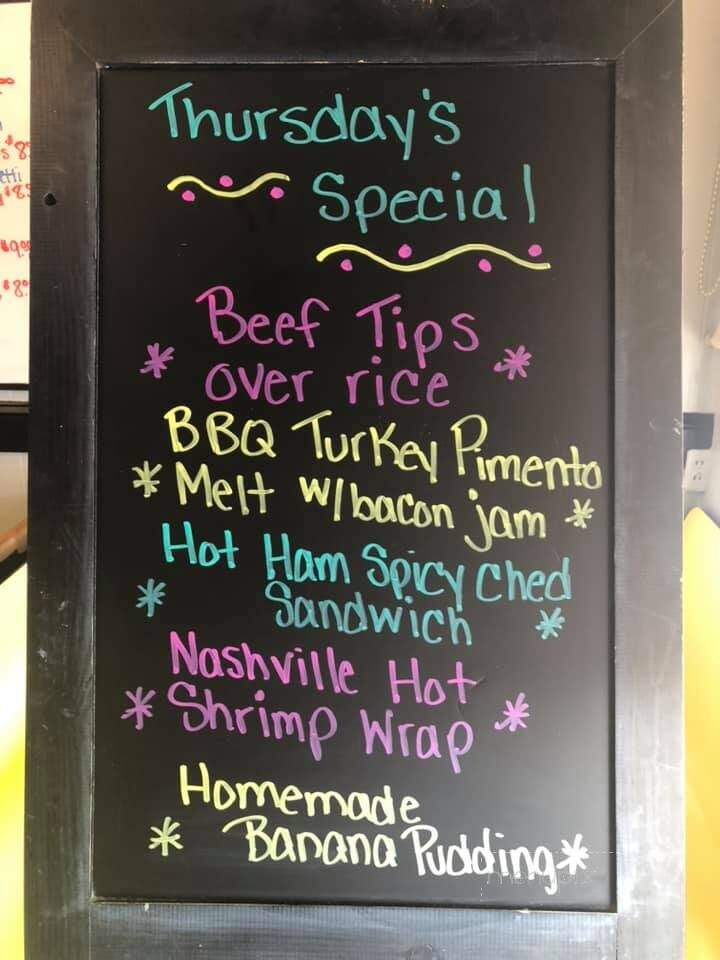 Thursday's
Special
Beef Tips
* over rice *
BBQ Turkey Pimento
* Melt w/bacon jam *
Hot Ham Spicy Ched
* Sandwich *
Nashville Hot
* Shrimp Wrap *
Homemade
* Banana Pudding *